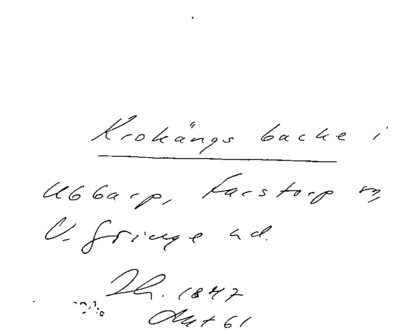 Krokängs backe i
Ubbarp, Farstorp sn,
V. Göinge hd.
Lh. 1847
Akt 61